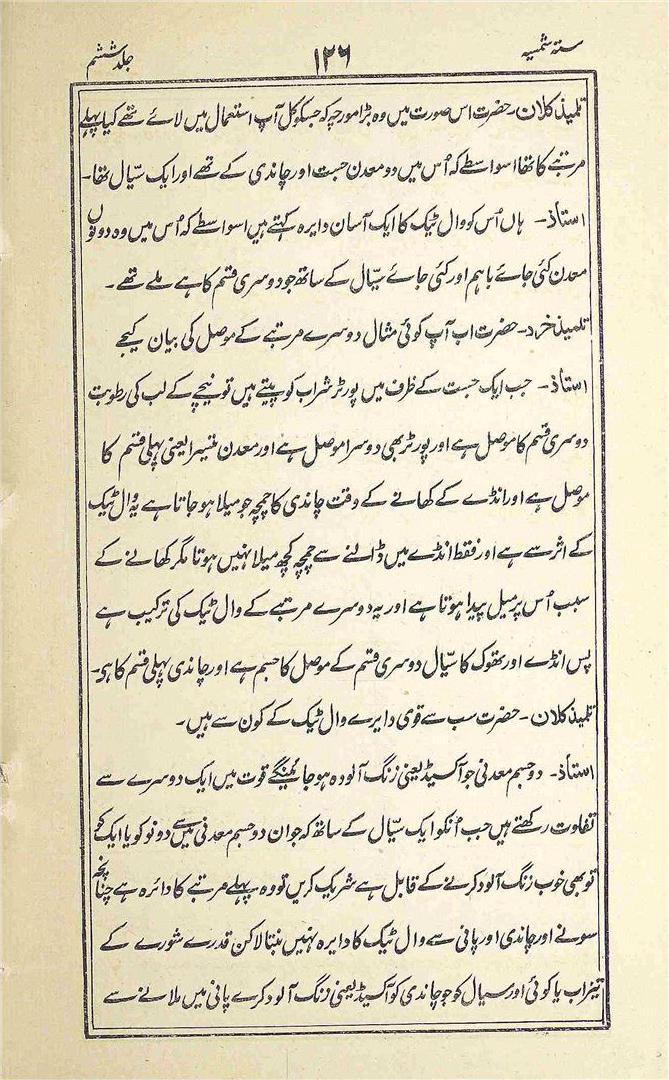 ستہ شمسیہ
۱۲۶
جلد ششم
تلمیذ کلان۔ حضرت اس صورت میں وہ بڑا مورچہ کہ جسکو کل آپ استعمال میں لائے تھے کیا پہلے
مرتبے کا تھا اسواسطے کہ اُس میں دو معدن جست اور چاندی کے تھے اور ایک سیّال تھا۔
استاذ۔ ہاں اُس کو وال ٹیک کا ایک آسان دایرہ کہتے ہیں اسواسطے کہ اُس میں وہ دونوں
معدن کئی جائے باہم اور کئی جائے سیّال کے ساتھ جو دوسری قسم کا ہے ملے تھے۔
تلمیذ خرد۔ حضرت اب آپ کوئی مثال دوسرے مرتبے کے موصل کی بیان کیجے
استاذ۔ جب ایک جست کے ظرف میں پورٹر شراب کو پیتے ہیں تو نیچے کے لب کی رطوبت
دوسری قسم کا موصل ہے اور پورٹر بھی دوسرا موصل ہے اور معدن تیسرا یعنی پہلی قسم کا
موصل ہے اور انڈے کے کھانے کے وقت چاندی کا چمچہ جو میلا ہو جاتا ہے یہ وال ٹیک
کے اثر سے ہے اور فقط انڈے میں ڈالنے سے چمچہ کچھ میلا نہیں ہوتا مگر کھانے کے
سبب اُس پر میل پیدا ہوتا ہے اور یہ دوسرے مرتبے کے وال ٹیک کی ترکیب ہے
پس انڈے اور تھوک کا سیّال دوسری قسم کے موصل کا جسم ہے اور چاندی پہلی قسم کا ہی۔
تلمیذ کلان۔ حضرت سب سے قوی دایرے وال ٹیک کے کون سے ہیں۔
استاذ۔ دو جسم معدنی جو آکسیڈ یعنی زنگ آلودہ ہو جائینگے قوت میں ایک دوسرے سے
تفاوت رکھتے ہیں جب اُنکو ایک سیّال کے ساتھ کہ جو ان دو جسم معدنی میں سے دونو کو یا ایک کو
تو بھی خوب زنگ آلود کرنے کے قابل ہے شریک کریں تو وہ پہلے مرتبے کا دائرہ ہے چنانچہ
سونے اور چاندی اور پانی سے وال ٹیک کا دایرہ نہیں بنتا لاکن قدرے شورے کے
تیزاب یا کوئی اور سیال کو جو چاندی کو آکسیڈ یعنی زنگ آلود کرے پانی میں ملانے سے